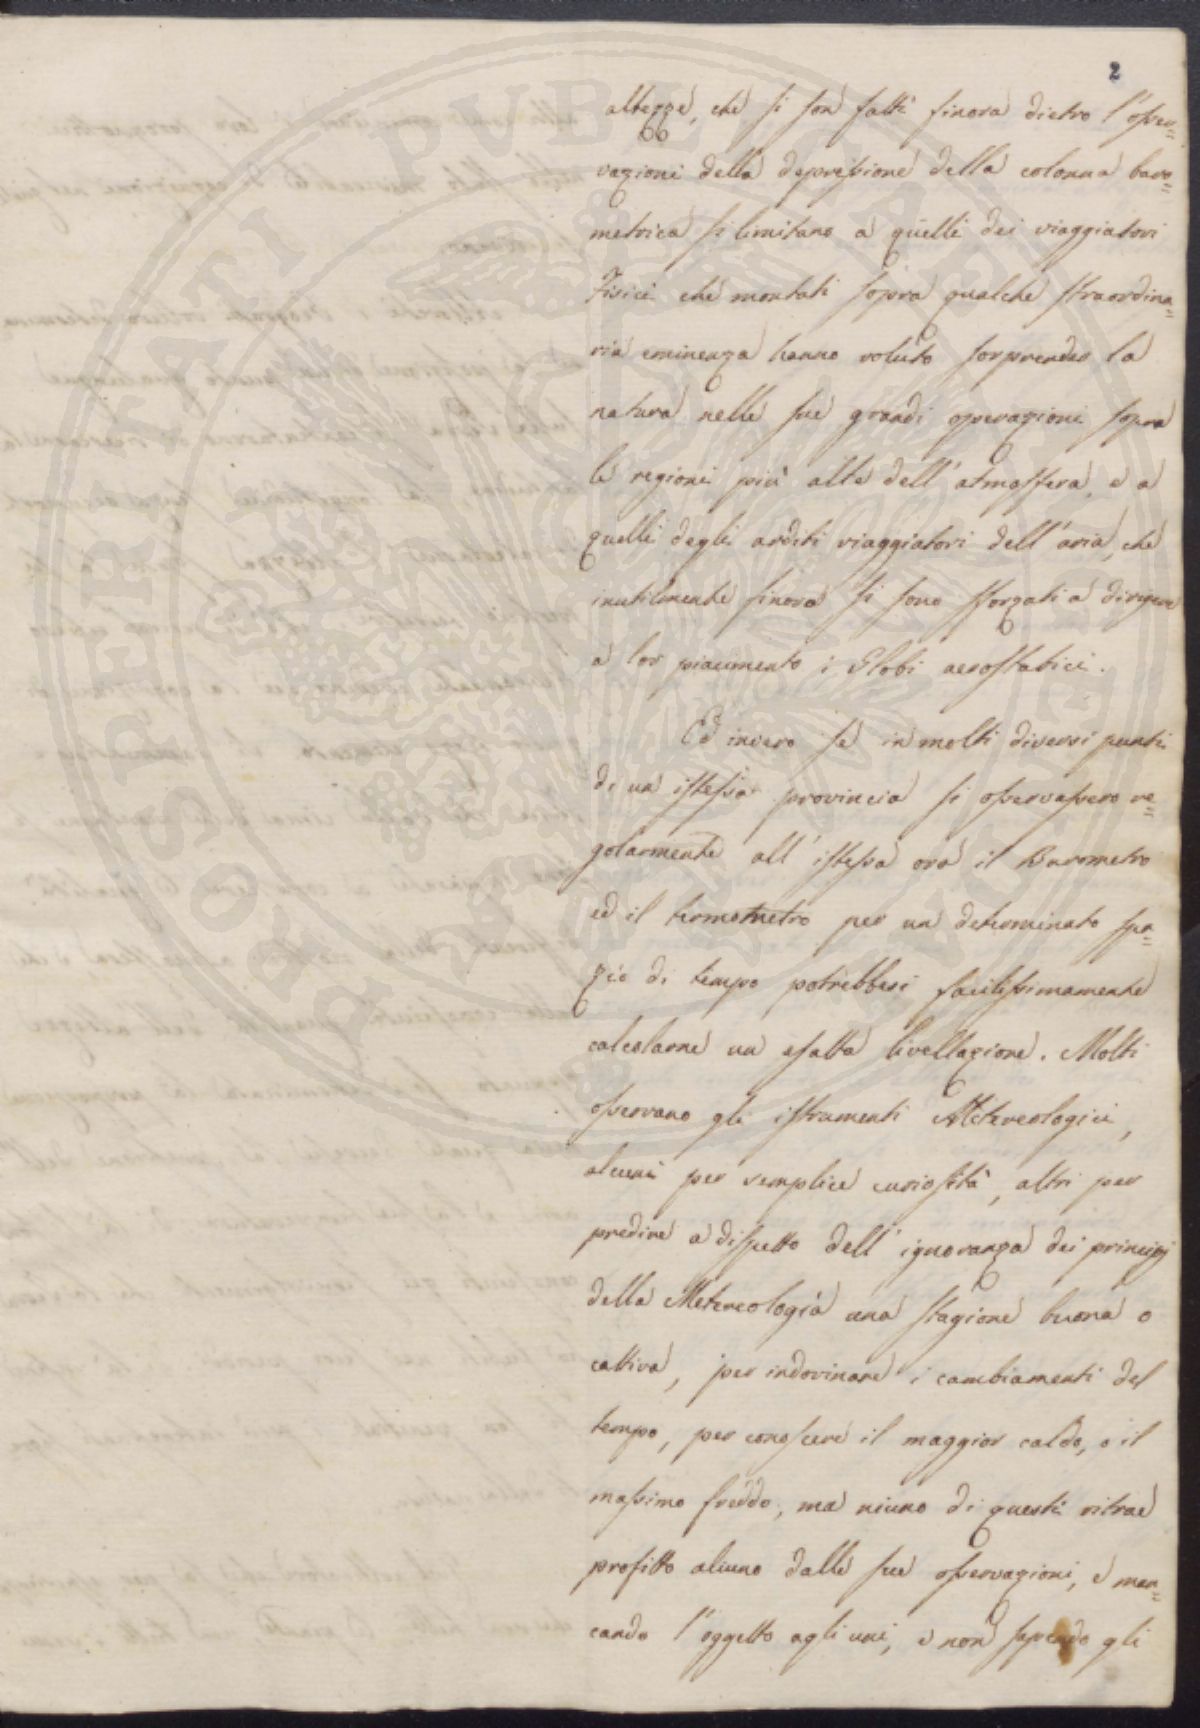 2
altezze, che si son fatti finora dietro l'osser=
vazioni della depressione della colonna baro=
metrica si limitano a quelli dei viaggiatori
Fisici che montati sopra qualche straordina=
ria eminenza hanno voluto sorprender la
natura nelle sue grandi operazioni sopra
le regioni più alte dell'atmosfera, e a
quelli degli arditi viaggiatori dell'aria, che
inutilmente finora si sono sforzati a dirigere
a lor piacimento i Globi aerostatici.
Ed invero se in molti diversi punti
di una istessa provincia si osservassero re=
golarmente all'istessa ora il Barometro
ed il termometro per un determinato spa=
zio di tempo potrebbesi facilissimamente
calcolarne una esatta livellazione. Molti
osservano gli istrumenti Metereologici,
alcuni per semplice curiosità, altri per
predire a dispetto dell'ignoranza dei principj
della Metereologia una stagione buona o
cattiva, per indovinare i cambiamenti del
tempo, per conoscere il maggior caldo, o il
massimo freddo, ma niuno di questi ritrae
profitto alcuno dalle sue osservazioni, e man=
cando l'oggetto agli uni, e non sapendo gli